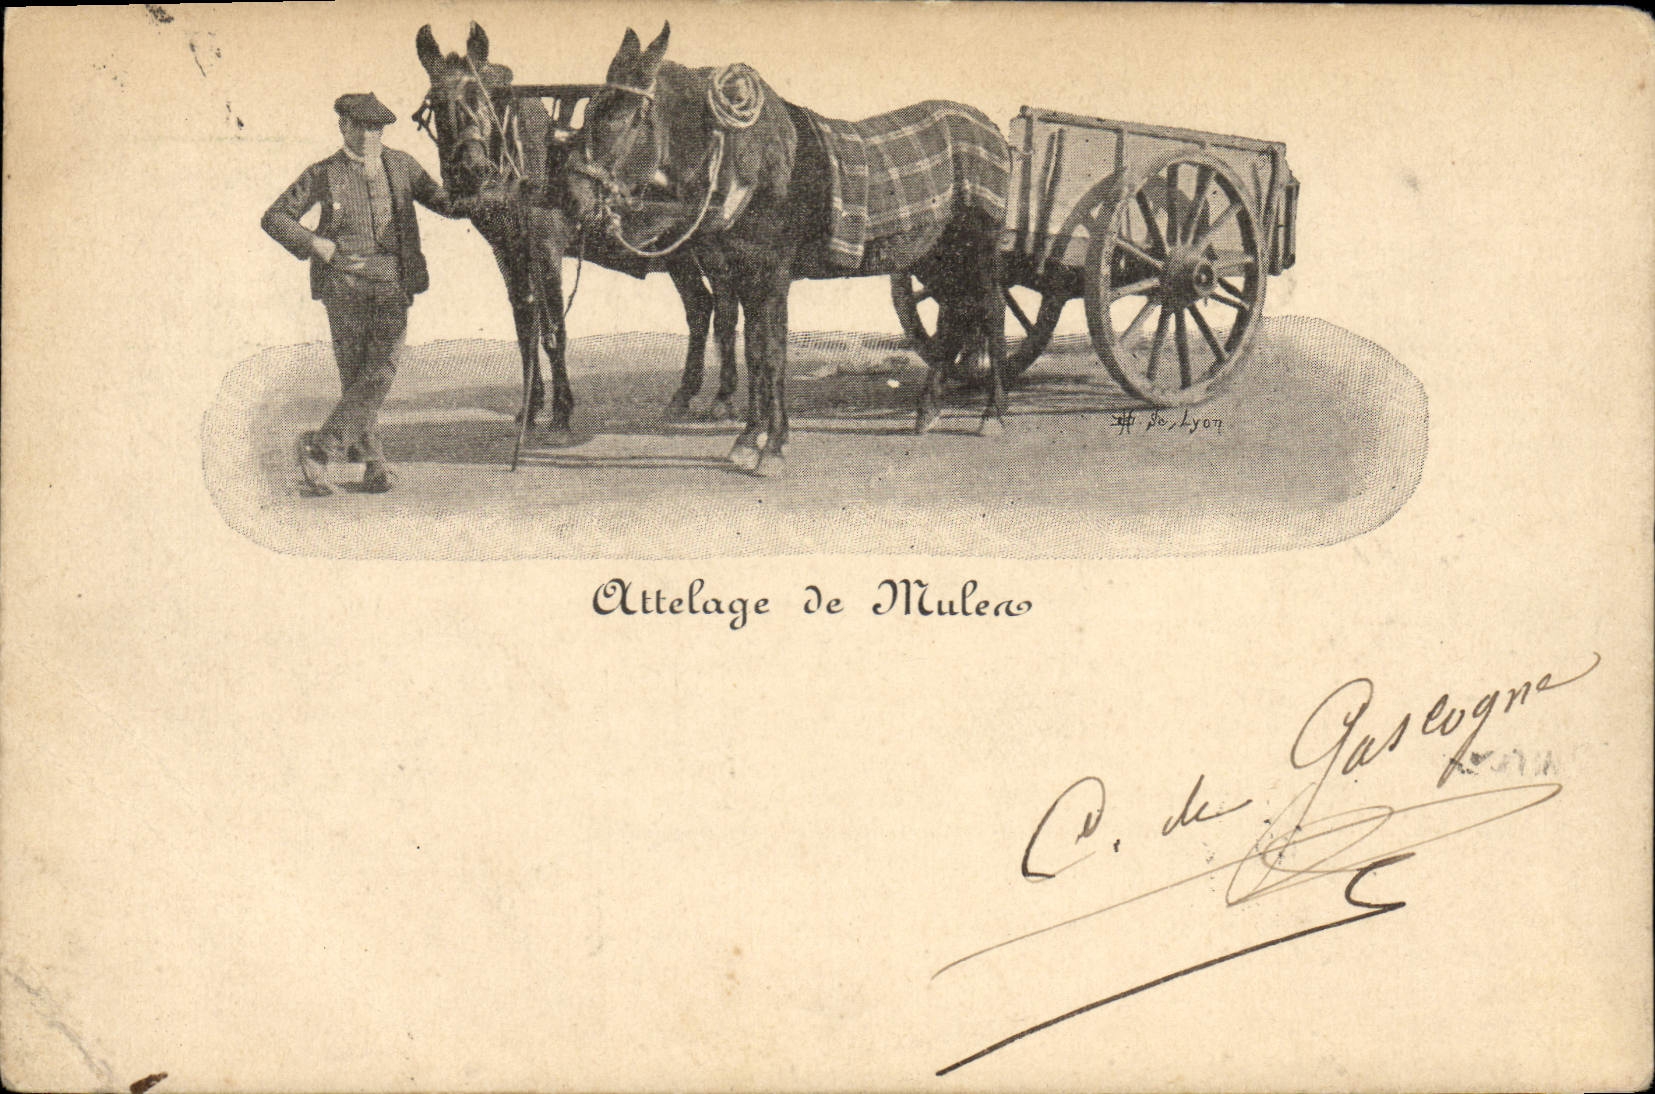 Sc, Lyon
Attelage de Mules
C. de Gascogne